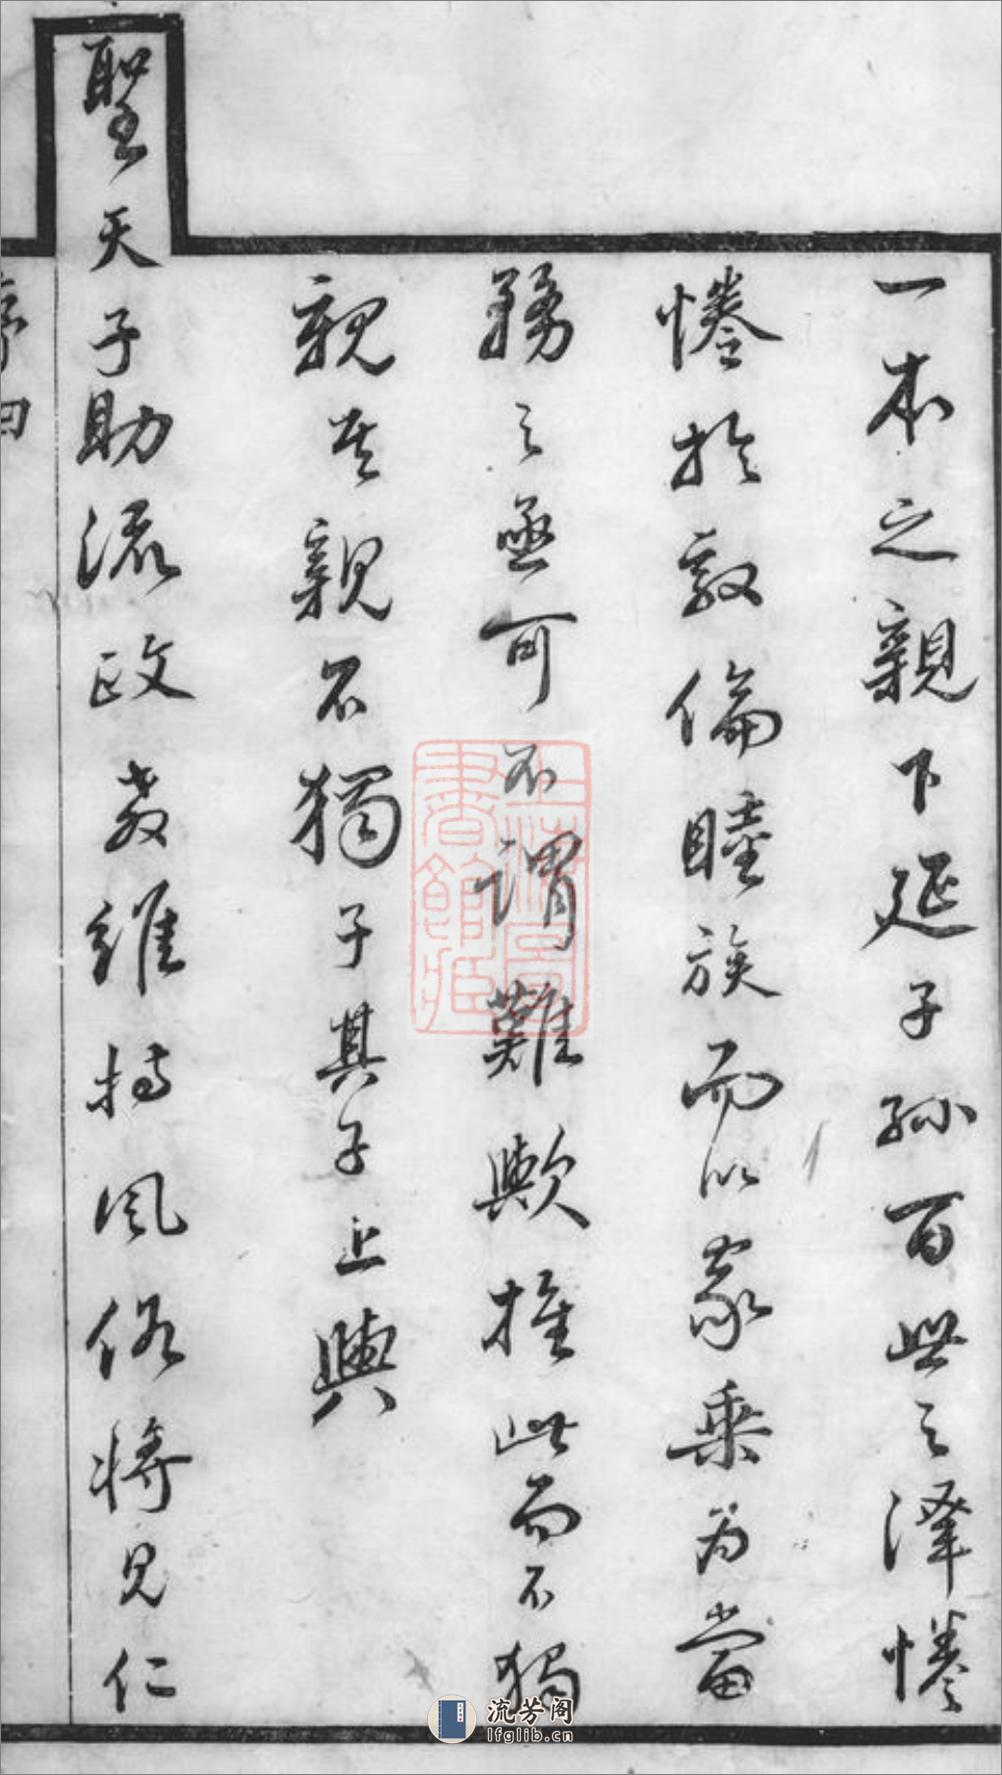 一本之親下延子孫百世之澤惓
惓於敦倫睦族而以家乗為當
務之亟可不謂難歟推此而不獨
親其親不獨子其子上與
聖天子助流政教維持風俗將見仁
序四
上海圖書館藏
流芳阁
lfglib.cn